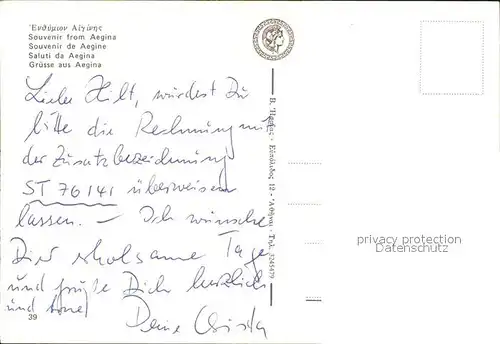 Ἐνθύμιον Αἰγίνης
Souvenir from Aegina
Souvenir de Aegine
Saluti da Aegina
Grüsse aus Aegina
Lieber Hilt, würdest Du
bitte die Rechnung mit
der Zusatzbezeichnung
ST 76141 überweisen
lassen. – Ich wünsche
Dir erholsame Tage
und grüße Dich herzlich
und
Deine Christa
39
Εὐπόλιδος 12 · Ἀθῆναι · Τηλ. 3245479
privacy protection
Datenschutz